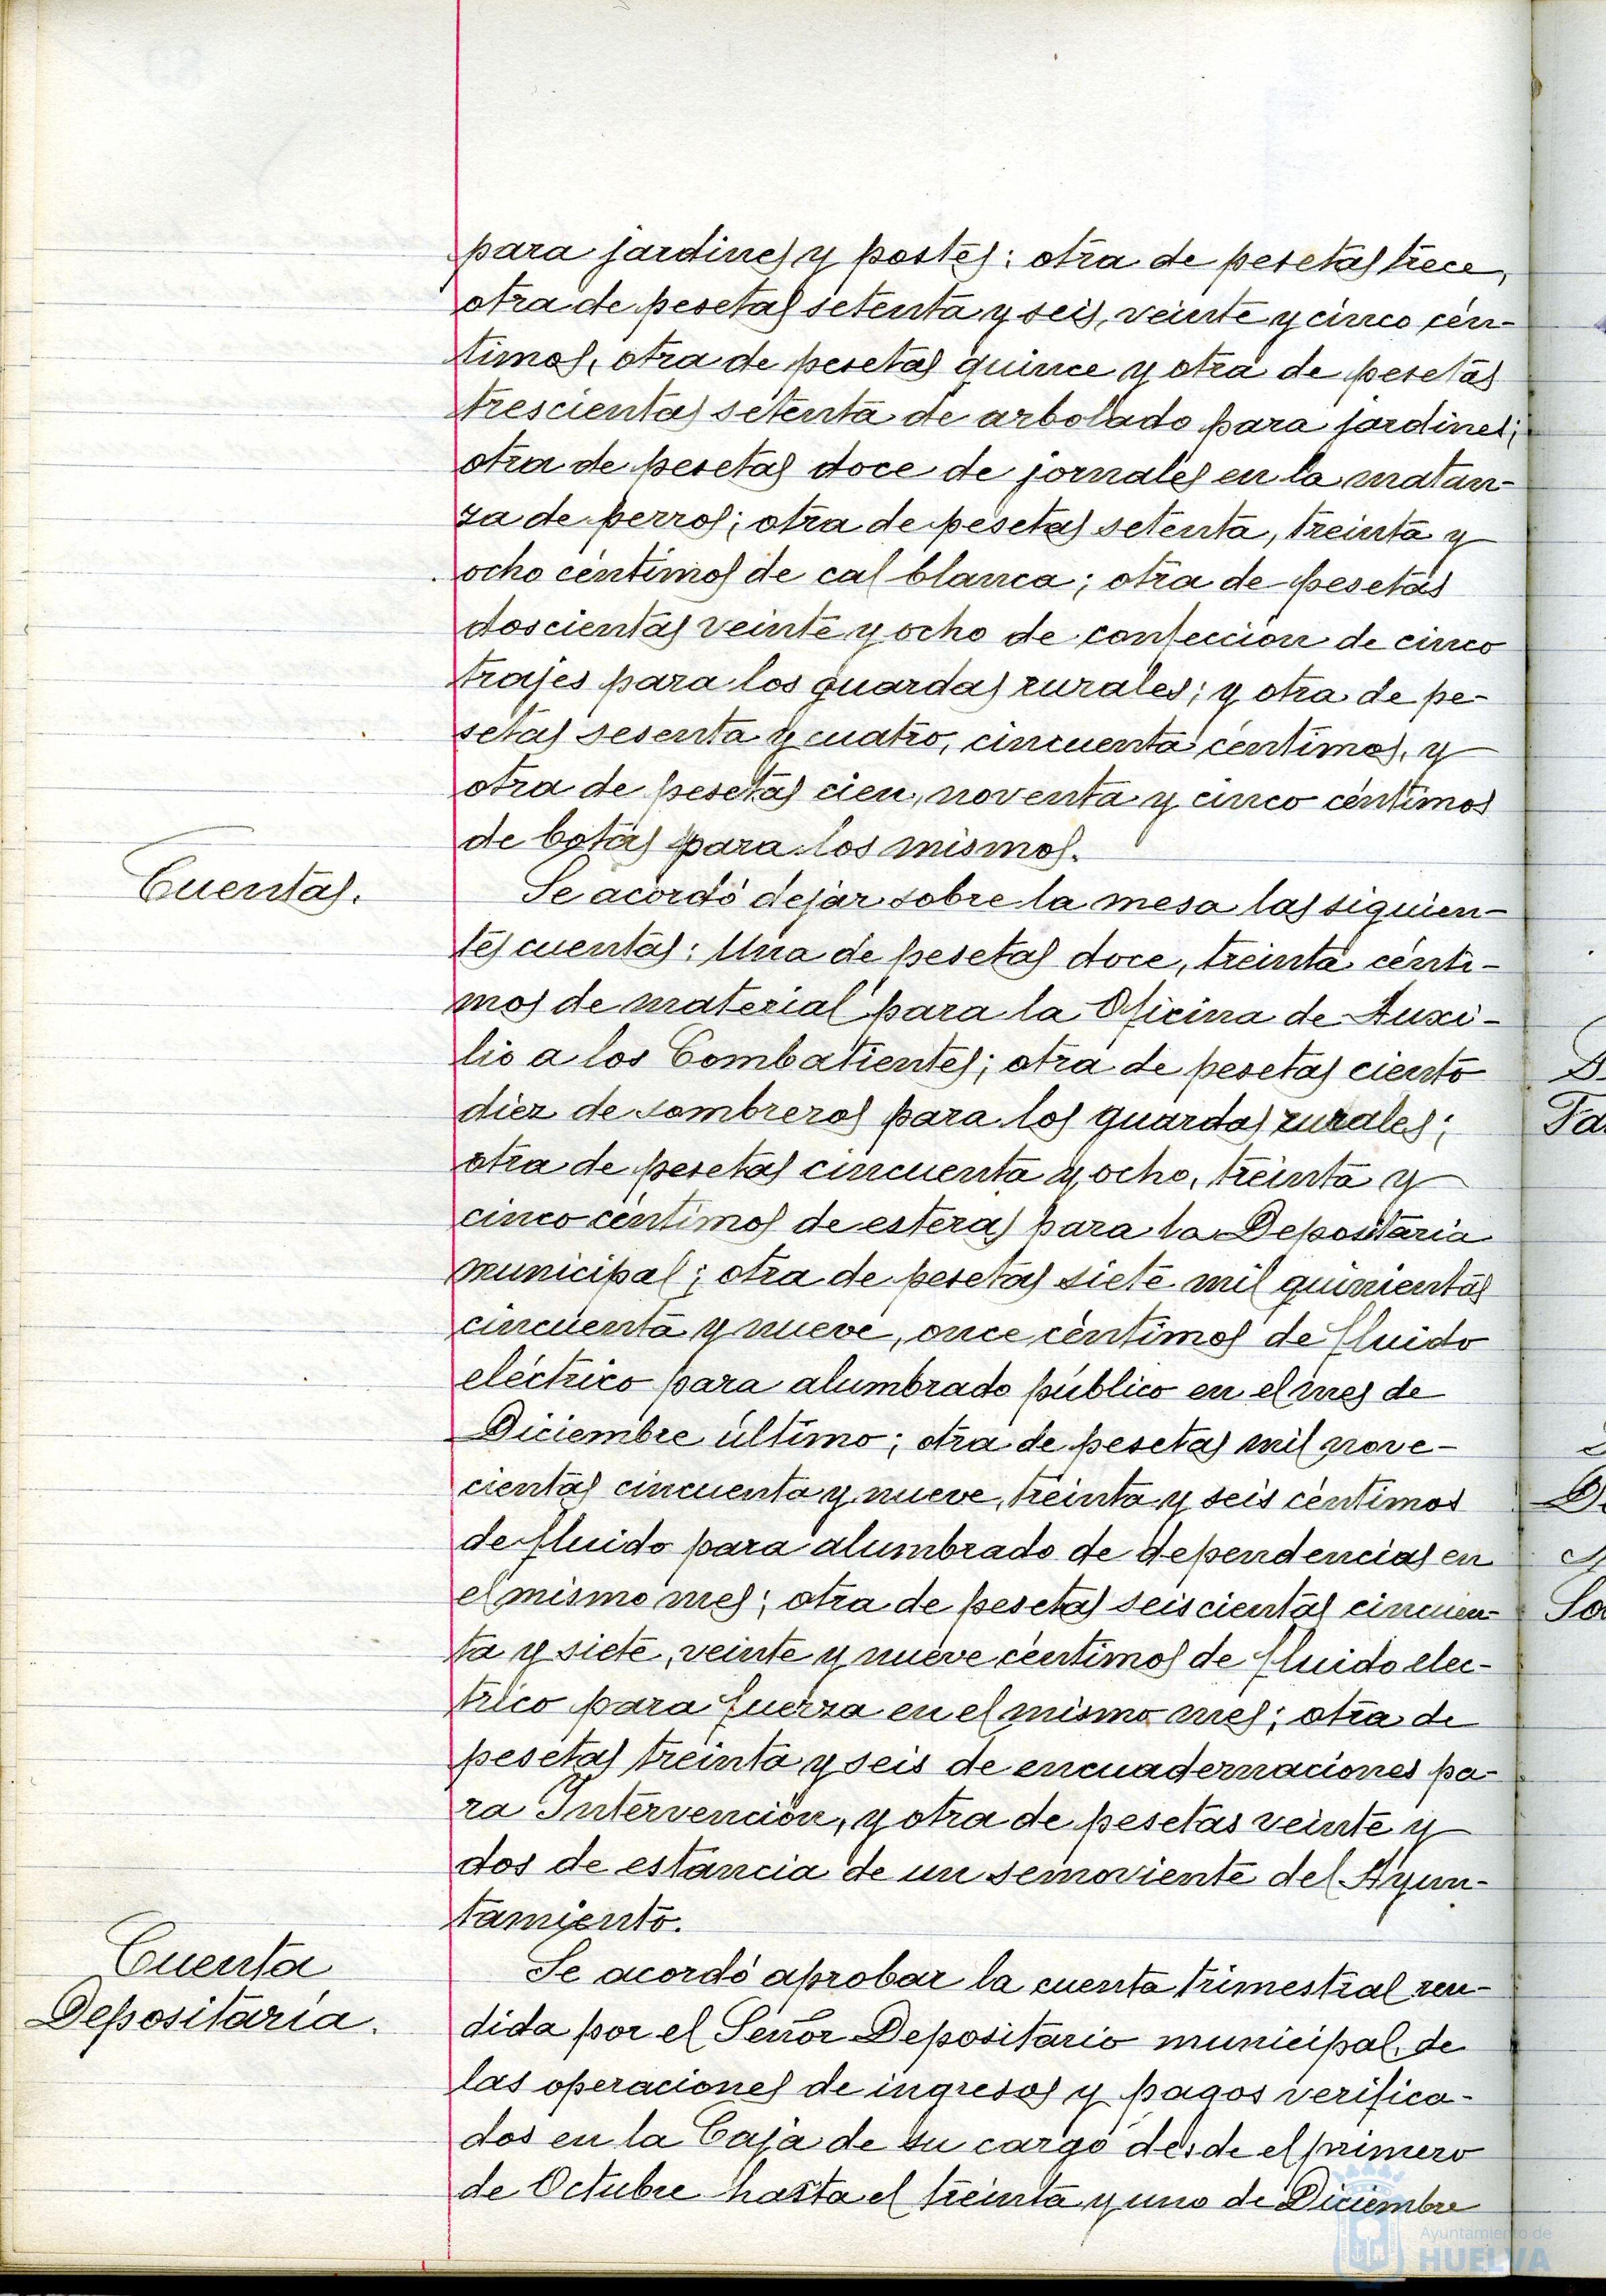 para jardines y postes; otra de pesetas trece,
otra de pesetas setenta y seis, veinte y cinco cén-
timos, otra de pesetas quince y otra de pesetas
trescientas setenta de arbolado para jardines;
otra de pesetas doce de jornales en la matan-
za de perros; otra de pesetas setenta, treinta y
ocho céntimos de cal blanca; otra de pesetas
doscientas veinte y ocho de confección de cinco
trajes para los guardas rurales; y otra de pe-
setas sesenta y cuatro, cincuenta céntimos, y
otra de pesetas cien, noventa y cinco céntimos
de botas para los mismos.
Cuentas.
Se acordó dejar sobre la mesa las siguien-
tes cuentas: Una de pesetas doce, treinta cénti-
mos de material para la Oficina de Auxi-
lio a los Combatientes; otra de pesetas ciento
diez de sombreros para los guardas rurales;
otra de pesetas cincuenta y ocho, treinta y
cinco céntimos de esteras para la Depositaría
municipal; otra de pesetas siete mil quinientas
cincuenta y nueve, once céntimos de fluido
eléctrico para alumbrado público en el mes de
Diciembre último; otra de pesetas mil nove-
cientas cincuenta y nueve, treinta y seis céntimos
de fluido para alumbrado de dependencias en
el mismo mes; otra de pesetas seiscientas cincuen-
ta y siete, veinte y nueve céntimos de fluido eléc-
trico para fuerza en el mismo mes; otra de
pesetas treinta y seis de encuadernaciones pa-
ra Intervención, y otra de pesetas veinte y
dos de estancia de un semoviente del Ayun-
tamiento.
Cuenta
Depositaría.
Se acordó aprobar la cuenta trimestral ren-
dida por el Señor Depositario municipal, de
las operaciones de ingresos y pagos verifica-
dos en la Caja de su cargo desde el primero
de Octubre hasta el treinta y uno de Diciembre
Ayuntamiento de
HUELVA